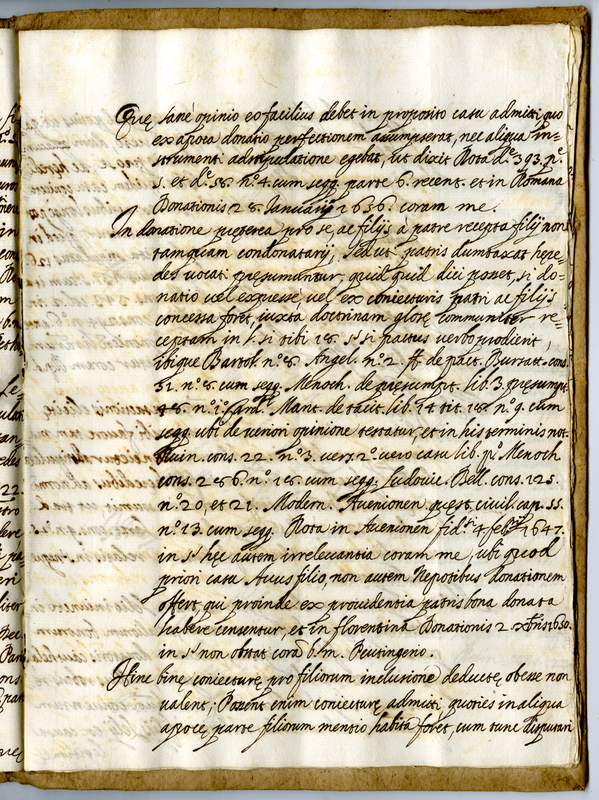 Quę sané opinio eo facilius debet in proposito casu admitti, quo
ex apoca donatio perfectionem assumpserat, nec aliqua in-
strumenti adstipulatione egebat, ut dixit Rota d.e 393. n.o
5. et d.o 58. n.o 4. cum segg. parte 6. recent. et in Romana
Donationis 28. Januarij 1636. coram me.
In donatione pręterea pro se, ac filijs a patre recepta filij non
tamquam condonatarij, sed ut patris dumtaxat herę-
des vocati pręsumuntur, quidquid dici posset, si do-
natio vel expresse, vel ex coniecturis patri ac filijs
concessa foret, iuxta doctrinam glosę communiter re-
ceptam in l. si tibi 18. s.s si pactus verbo prodierit,
ibique Bartol n.o 8. Angel. n.o 2. ff. de pact. Bursatt. cons.
51. n.o 8. cum segg. Menoch. de pręsumpt. lib. 3. pręsumpt.
48. n.o 1. Mant. de tacit. lib. 14 tit. 18. n.o 9. cum
segg. ubi de veriori opinione testatur, et in his terminis not.
cons. 22. n.o 3. vers. 2.o vero casu lib. p.o Menoch
cons. 256. n.o 18. cum segg. Ludovic. Bell. cons. 125.
n.o 20, et 21. Modern. Avenionen quęst. civil. cap. 55.
n.o 13. cum segg. Rota in Avenionen 4 1647.
in s.s hęc autem irrelevantia coram me, ubi quod
priori casu Avus filio, non autem Nepotibus donationem
offert, qui proinde ex providentia patris bona donata
habere censentur, et in florentina Donationis 2. Xbris 1650.
in s.s non obstat corā b. m. Peutingerio.
Hinc binę coniecturę pro filiorum inclusione deductę obesse non
valent; Possent enim coniecturę admitti quoties in aliqua
apocę parte filiorum mentio habita foret, cum tunc disputari